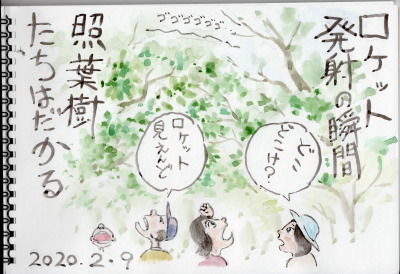 ロケット
発射の瞬間
ゴゴゴゴゴゴ…
照葉樹
たちはだかる
どこ
どこけ?
ロケット
見えんど
2020.2.9